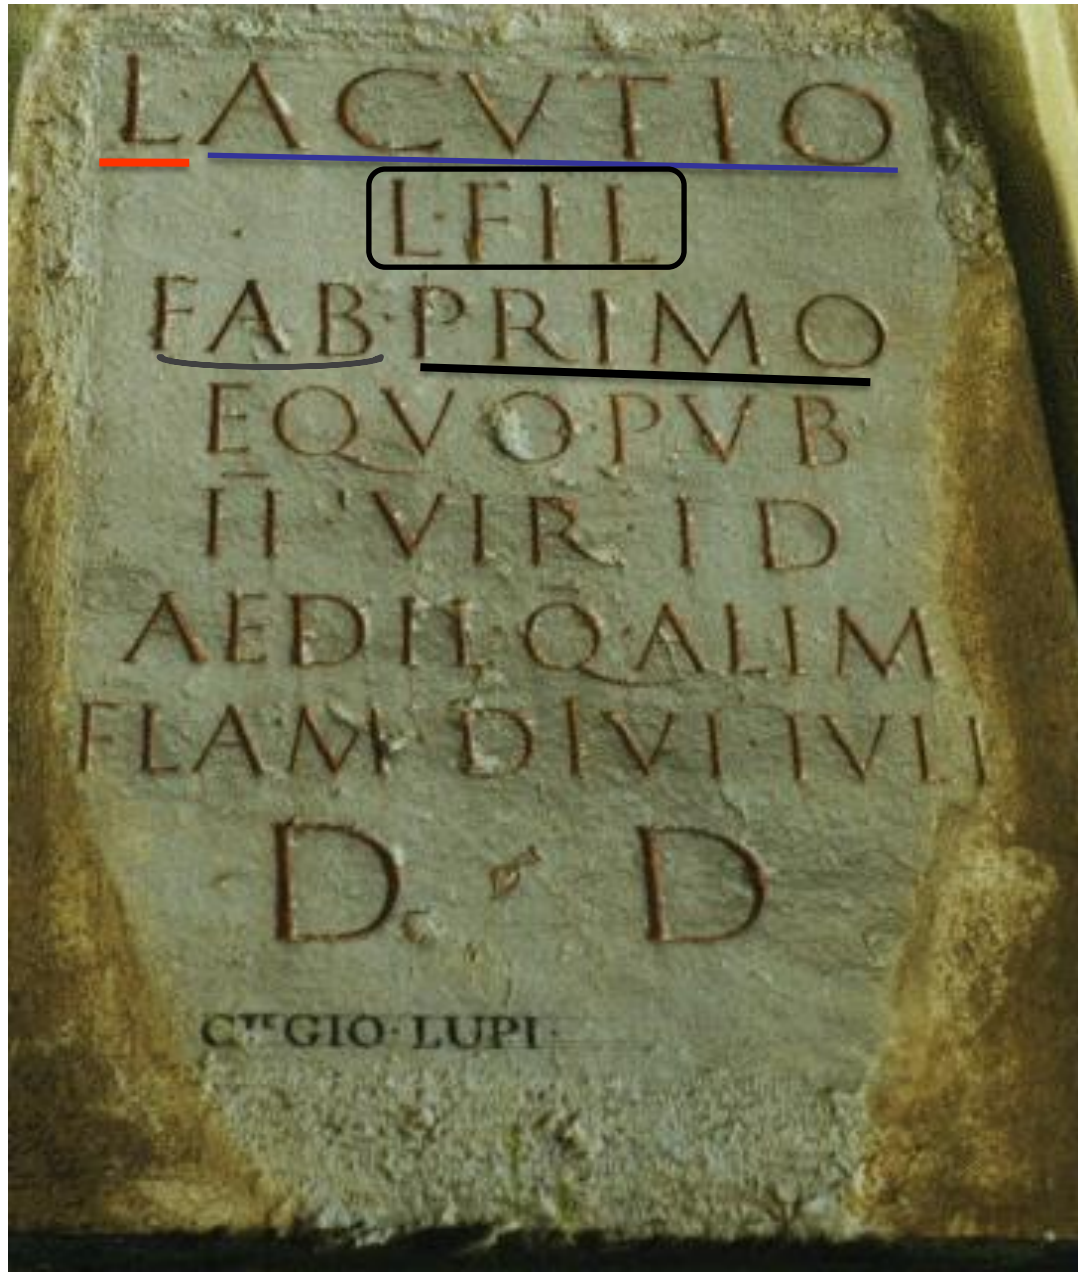 L ACVTIO
L·FIL
FAB·PRIMO
EQVO·PVB
II VIR I D
AEDIL Q ALIM
FLAM DIVI IVLI
D D
GIO·LUPI·